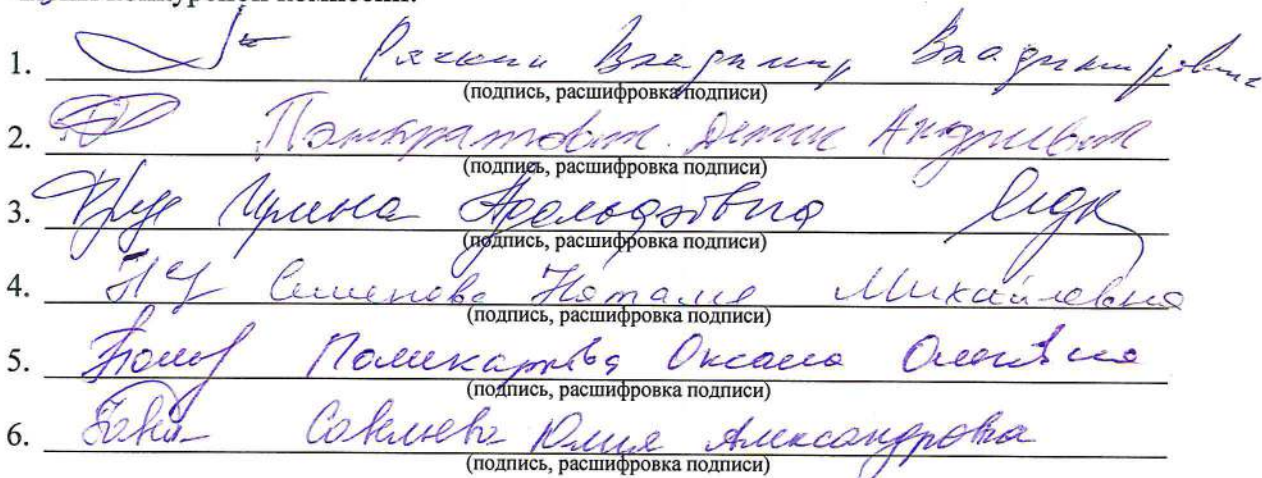 конкурсной комиссии:
1. Владимир Владимирович
(подпись, расшифровка подписи)
2. Панкратович Денис Андреевич
(подпись, расшифровка подписи)
3. Друс Ирина Арольдовна
(подпись, расшифровка подписи)
4. Семенова Наталия Михайловна
(подпись, расшифровка подписи)
5. Поликарпова Оксана Олеговна
(подпись, расшифровка подписи)
6. Савельева Юлия Александровна
(подпись, расшифровка подписи)